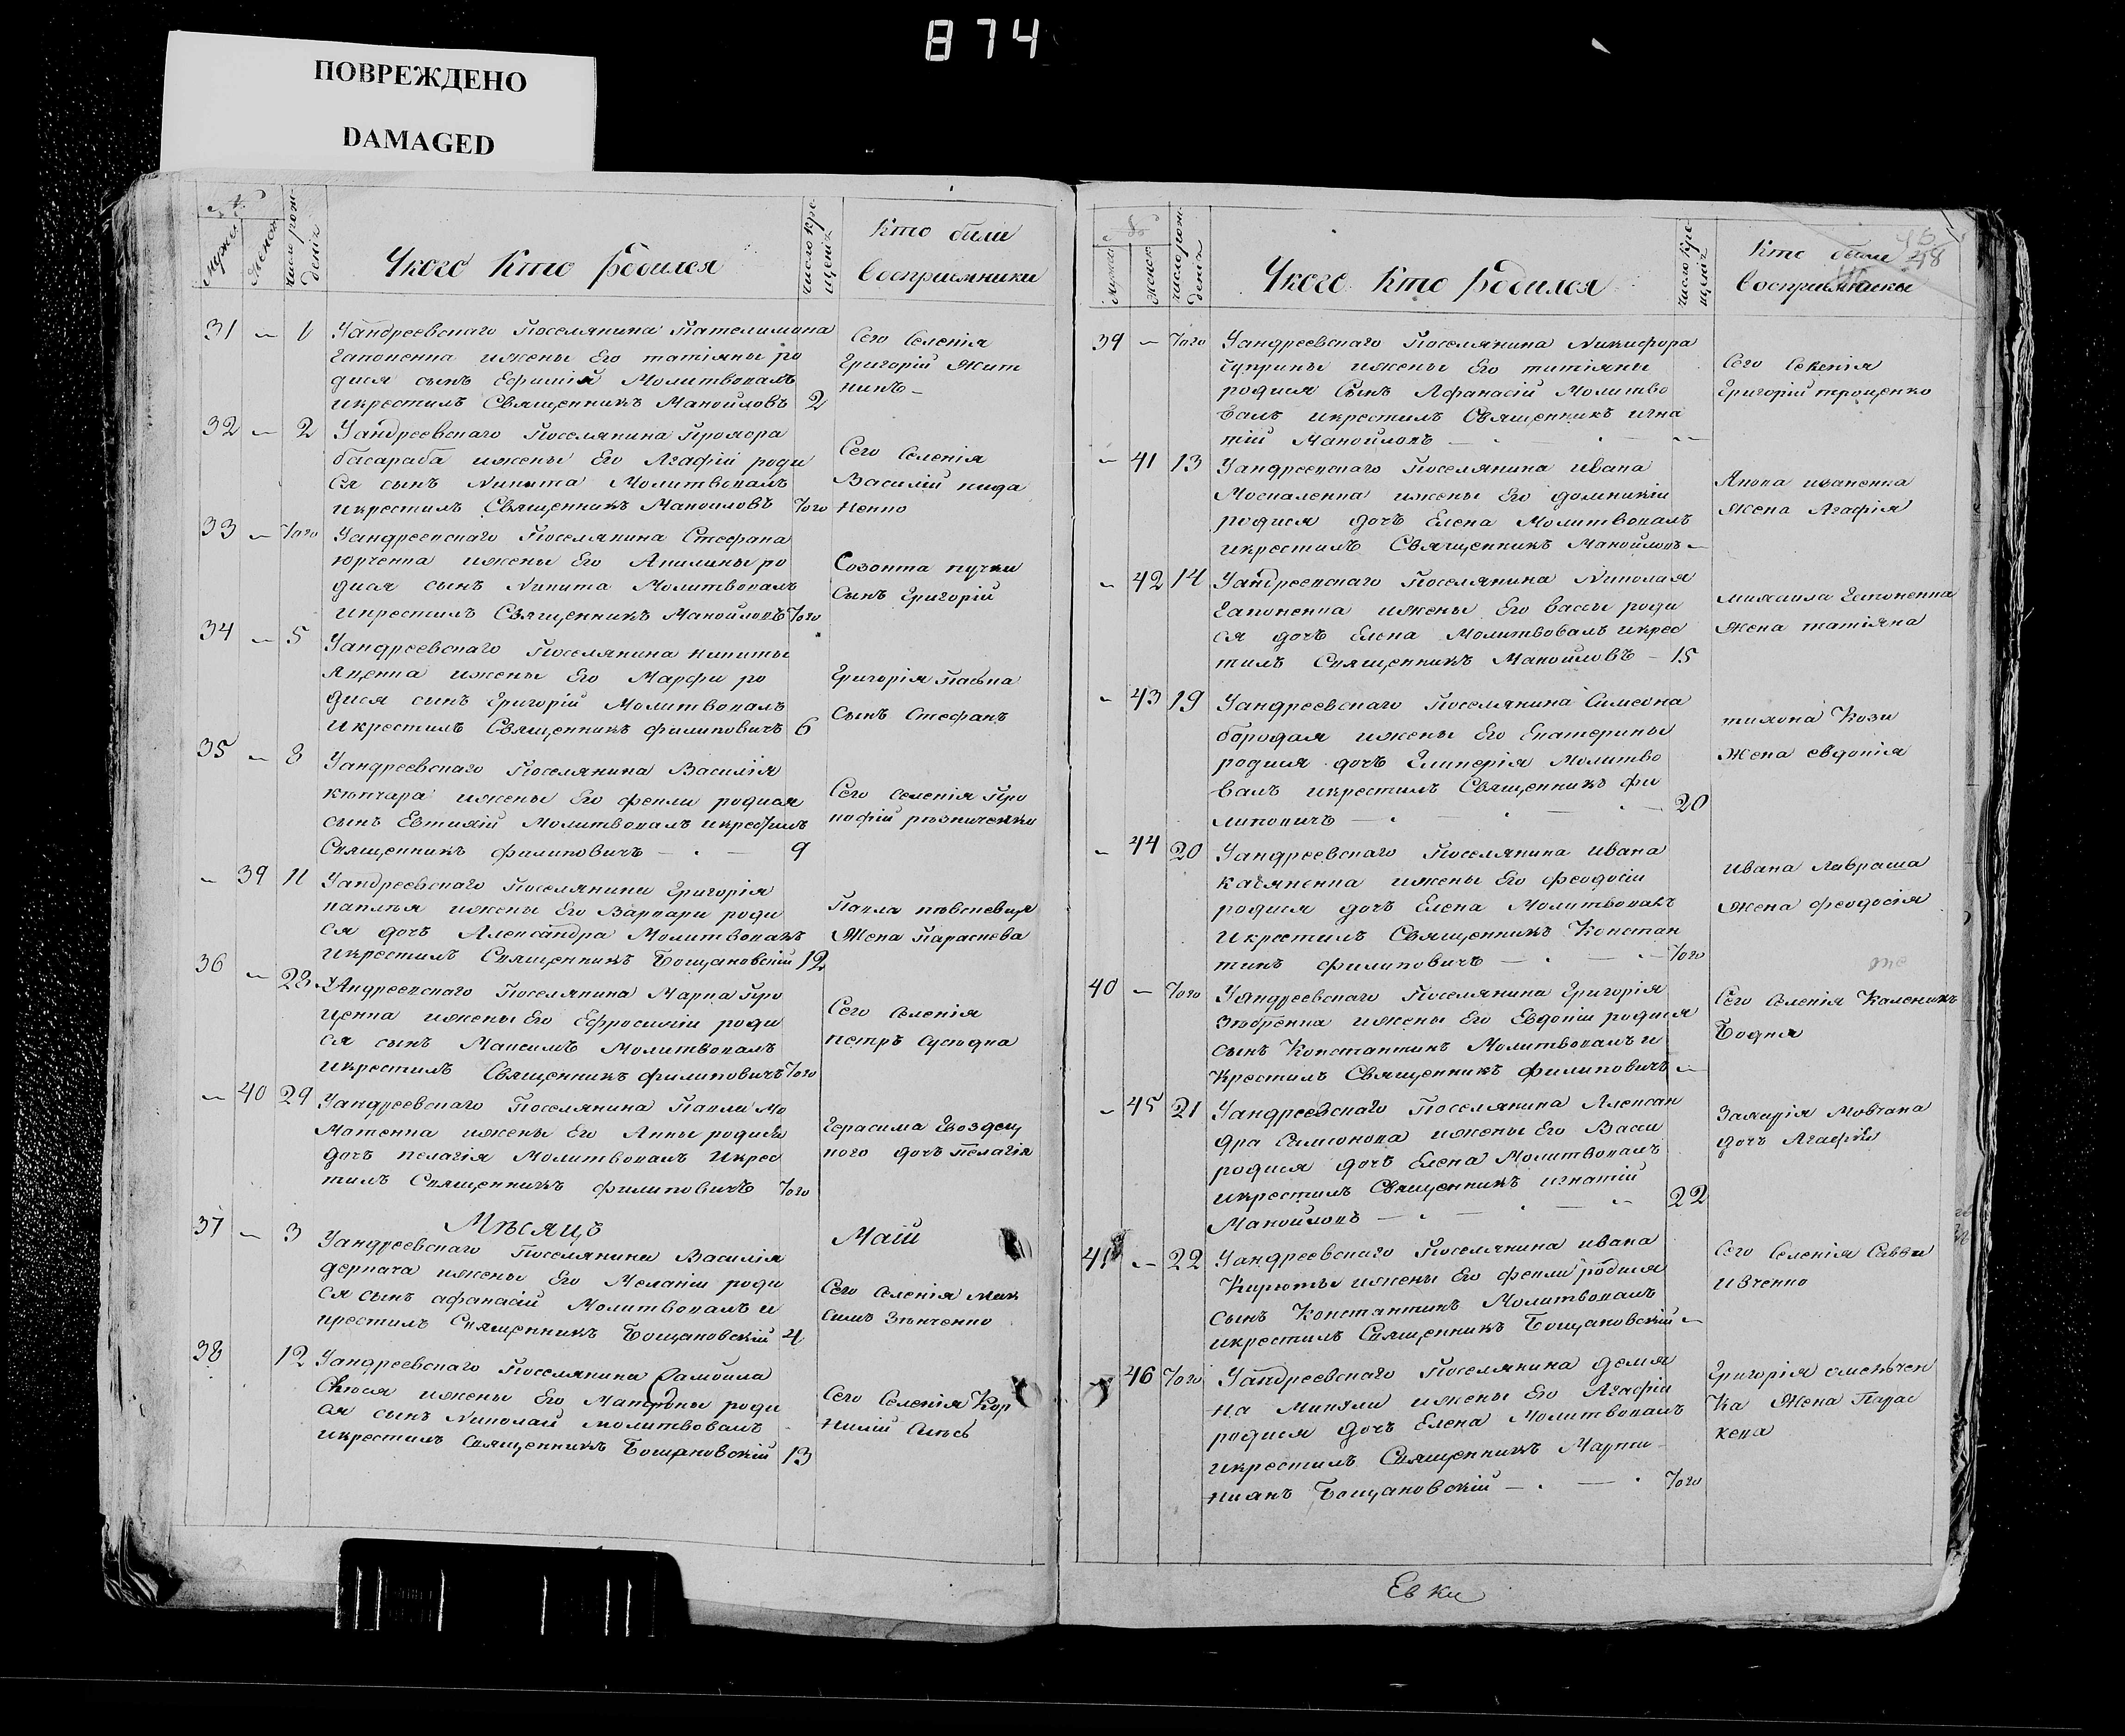 874
ПОВРЕЖДЕНО
DAMAGED
№
мужес
женск
число рож-
денія
Укого Кто родился
число кре-
щенія
Кто были
восприемники
31 — 1 Уандреевскаго Поселянина Пателимона
Гапоненка ижены Его татіяны ро
дися сынъ Ефимій Молитвовалъ
икрестилъ Священникъ Манойловъ 2
Сего Селенія
Григорій Жит
никъ —
32 — 2 Уандреевскаго Поселянина Прохора
басараба ижены Его Агафіи роди
ся сынъ Никита Молитвовалъ
икрестилъ Священникъ Маноиловъ Того
Сего Селенія
Василій кида
ненко
33 — Того Уандреевскаго Поселянина Стефана
юрченка ижены Его Акилины ро
дися сынъ Никита Молитвовалъ
икрестилъ Священникъ Манойловъ Того
Созонта пучки
Сынъ Григорій
34 — 5 Уандреевскаго Поселянина никиты
Яценка ижены Его Марфи ро
дися сынъ Григорій Молитвовалъ
икрестилъ Священникъ филиповичъ 6
Григорія
Сынъ Стефанъ
35 — 8 Уандреевскаго Поселянина Василія
ижены Его фекли родися
сынъ Евтихій Молитвовалъ икрестилъ
Священникъ филиповичъ — . — 9
Сего селенія Про
кофій резниченко
— 39 11 Уандреевскаго Поселянини Григорія
ижены Его Варвари роди
ся дочъ Александра Молитвовалъ
икрестилъ Священникъ Бощановскій 12
Павла
Жена Параскева
36 — 28 УАндреевскаго Поселянина Марка Про
ценка ижены Его Ефросиніи роди
ся сынъ Максимъ Молитвовалъ
икрестилъ Священникъ филиповичъ Того
Сего Селенія
петръ
— 40 29 Уандреевскаго Поселянина Павли Мо
ижены Его Анны родися
дочъ пелагія Молитвовалъ Икрес
тилъ Священникъ филиповичъ Того
Герасима Гвоздец
кого дочъ Пелагія
Мѣсяцъ Маій
37 — 3 Уандреевскаго Поселянини Василія
деркача ижены Его Меланіи роди
ся сынъ афанасій Молитвовалъ и
крестилъ Священникъ Бощановскій 4
Сего Селенія Мак
симъ Зѣнченко
38 12 Уандреевскаго Поселянина Самойла
ижены Его Матроны роди
ся сынъ Николай молитвовалъ
икрестилъ священникъ Бощановскій 13
Сего Селенія Кор
нилій
№
мужес
женск
число рож-
денія
Укого Кто родился
число кре-
щенія
Кто были
восприемники
48
39 — Того Уандреевскаго Поселянина Никифора
чуприны ижены Его татіяны
родися Сынъ Афанасій Молитво
валъ икрестилъ Священникъ игна
тій Манойловъ —
Сего Селенія
Григорій троценко
— 41 13 Уандреевскаго Поселянина ивана
Москаленка ижены Его домникіи
родися дочъ Елена Молитвовалъ
икрестилъ Священникъ Манойловъ —
Якова иваненка
жена Агафія
— 42 14 Уандреевскаго Поселянина Николая
Гапоненка ижены Его вассы роди
ся дочъ Елена Молитвовалъ икрес
тилъ Священникъ Манойловъ — 15
михаила Гапоненка
жена татіяна
— 43 19 Уандреевскаго Поселянина Симеона
бородая ижены Его Екатерины
родися дочъ Гликерія Молитво
валъ икрестилъ Священникъ фи
липовичъ — 20
тихона Кози
жена евдокія
— 44 20 Уандреевскаго Поселянина ивана
касяненка ижены Его феодосіи
родися дочъ Елена Молитвовалъ
икрестилъ Священникъ Констан
тинъ филиповичъ — Того
ивана Лавраша
жена феодосія
40 — Того Уандреевскаго Поселянина Григорія
ижены Его Евдокіи родися
сынъ Константинъ Молитвовалъ и
крестилъ Священникъ филиповичъ —
Сего селенія Каленикъ
Бодня
— 45 21 Уандреевскаго Поселянина Алексан
дра Симонова ижены Его Васси
родися дочъ Елена Молитвовалъ
икрестилъ Священникъ игнатій
Манойловъ — 22
Захарія Мовчана
дочъ Агафія
41 — 22 Уандреевскаго Поселянина ивана
Кирюты ижены Его фекли родися
сынъ Константинъ Молитвовалъ
икрестилъ Священникъ Бощановскій —
Сего Селенія Савви
ивченко
— 46 Того Уандреевскаго Поселянина демя
на ижены Его Агафіи
родися дочъ Елена Молитвовалъ
икрестилъ Священникъ Марти
ніянъ Бощановскій — . — . Того
Григорія
ка Жена Парас
кева